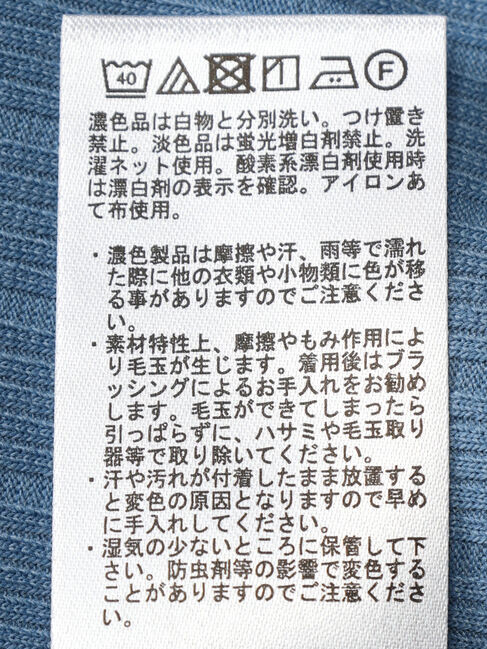 40 F
濃色品は白物と分別洗い。つけ置き
禁止。淡色品は蛍光増白剤禁止。洗
濯ネット使用。酸素系漂白剤使用時
は漂白剤の表示を確認。アイロンあ
て布使用。
・濃色製品は摩擦や汗、雨等で濡れ
た際に他の衣類や小物類に色が移
る事がありますのでご注意くださ
い。
・素材特性上、摩擦やもみ作用によ
り毛玉が生じます。着用後はブラ
ッシングによるお手入れをお勧め
します。毛玉ができてしまったら
引っぱらずに、ハサミや毛玉取り
器等で取り除いてください。
・汗や汚れが付着したまま放置する
と変色の原因となりますので早め
に手入れしてください。
・湿気の少ないところに保管して下
さい。防虫剤等の影響で変色する
ことがありますのでご注意くださ
い。